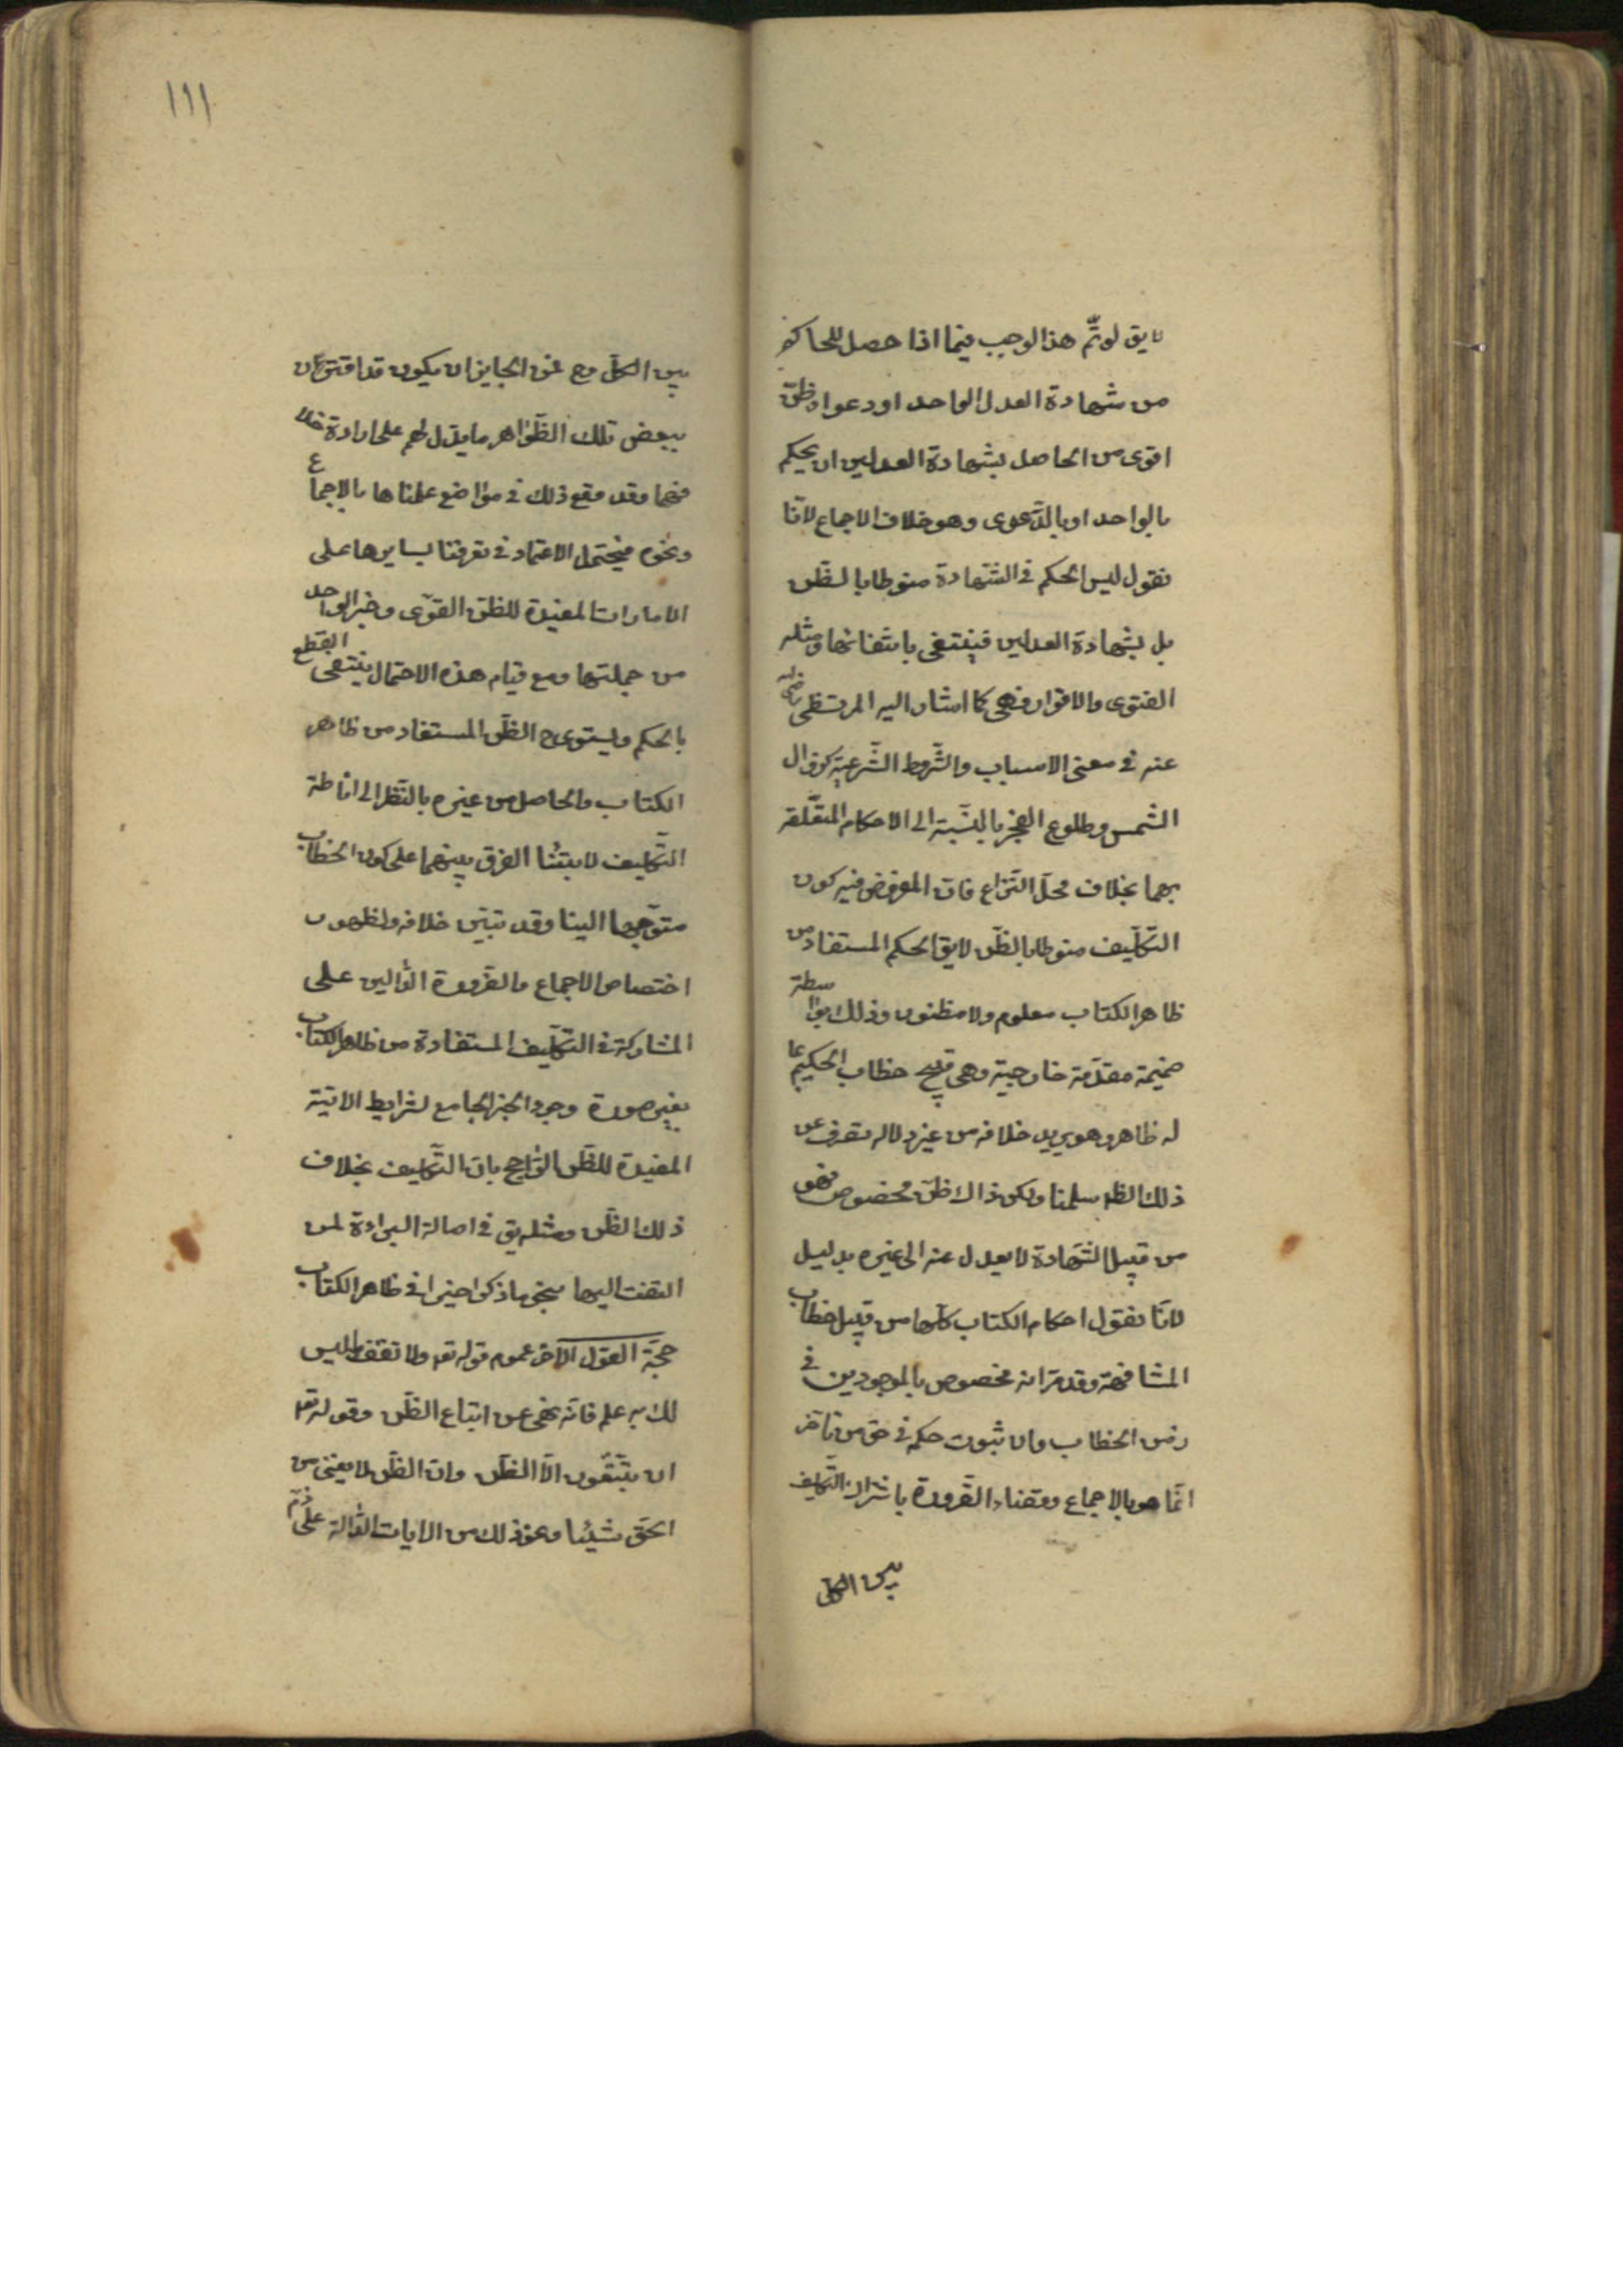 لا يق لو تمّ هذا لوجب فيما اذا حصل للحاكم
من شهادة العدل الواحد او دعواه ظنّ
اقوى من الحاصل بشهادة العدلين ان يحكم
بالواحد او بالدّعوى وهو خلاف الاجماع لانّا
نقول ليس الحكم في الشّهادة منوطا بالظّن
بل بشهادة العدلين فينتفى بانتفائها ومثله
الفتوى والاقرار فهى كما اشار اليه المرتضى رضى الله
عنه في معنى الاسباب والشّروط الشّرعيّة كزوال
الشّمس وطلوع الفجر بالنّسبة الى الاحكام المتعّلقة
بهما بخلاف محلّ النّزاع فان المفروض فيه كون
التّكليف منوطا بالظّن لا يق الحكم المستفاد من
ظاهر الكتاب معلوم ولا مظنون وذلك بواسطة
ضميمة مقدّمة خارجية وهى قبح خطاب الحكيم بما
له ظاهر وهو يريد خلافه من غير دلاله تصرف عن
ذلك الظه سلمنا ولكن ذاك ظنّ مخصوص فهو
من قبيل الشّهادة لا يعدل عنه الى غيره بدليل
لانّا نقول احكام الكتاب كلّها من قبيل خطاب
المشافهة وقد مرّ انه مخصوص بالموجودين في
زمن الخطاب وان ثبوت حكمه في حق من تاخر
انّما هو بالاجماع وقضاء الضّرورة باشتراك التّكليف
بين الكل
١١١
بين الكلّ وح فمن الجايز ان يكون قد اقترن
ببعض تلك الظّواهر ما يدّل لهم على ارادة خلا
فها وقد وقع ذلك في مواضع علمناها بالاجماع
ونحوه فيحتمل الاعتماد في تعريفنا بسايرها على
الامارات المفيدة للظن القوّى وخبر الواحد
من جملتها ومع قيام هذه الاحتمال ينتفى القطع
بالحكم ويستوى ح الظّن المستفاد من ظاهر
الكتاب والحاصل من غيره بالنّظر الى اناطة
التّكليف لابتنا الفرق بينهما على كون الخطاب
متوّجها الينا وقد تبيّن خلافه ولظهور
اختصاص الاجماع والضّرورة الدّالين على
المشاركة في التّكليف المستفادة من ظاهر الكتاب
بغير صورة وجود الخبر الجامع لشرايط الاتية
المفيدة للظّن الرّاجح بان التّكليف بخلاف
ذلك الظّن ومثله يق في اصالة البراءة لمن
التفت اليها بنحو ما ذكر اخيرا في ظاهر الكتاب
حجّة القول الآخر عموم قوله تعه ولا تقف ما ليس
لك به علم فانّه نهى عن اتباع الظّن وقوله تعه
ان يتّبعون الّا الظّن وان الظّن لا يغنى من
الحق شيئا ونحو ذلك من الايات الدّالة على ذّم